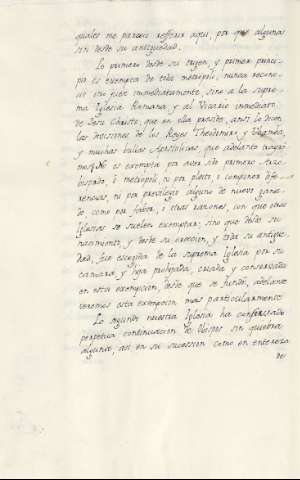 quales me parecio referir aqui, por que algunas
son desde su antiguedad.
Lo primero desde su origen, y primer princi-
pio es exempta de todo metropoli, nunca recono-
cio otro fuero immediatamente, sino a la supre-
ma Iglesia Romana, y al Vicario inmediato
de Jesu Christo, que en ella preside, assi lo dicen
las divisiones de los Reyes Theodomir, y Vvamba,
y muchas bullas Apostolicas, que adelante
es exempta por aver sido primero Arzo-
bispado, o metropoli, ni por pleito, o composicion, dife-
rencias, ni por previlegio alguno de nuevo gana-
do, como por fabor, o otras razones, con que otras
Iglesias se suelen exemptar; sino que desde su
nacimiento, y desde su ereccion, y toda su antigue-
dad, fue escogida de la suprema Iglesia por su
camara, y hija prohijada, criada, y conservada
en esta exempcion, desde que se fundò, adelante
veremos esta exempcion mas particularmente
Lo segundo nuestra Iglesia ha conservado
perpetua continuacion de Obispos sin quiebra
alguna, assi en su sucession como en entereza
de